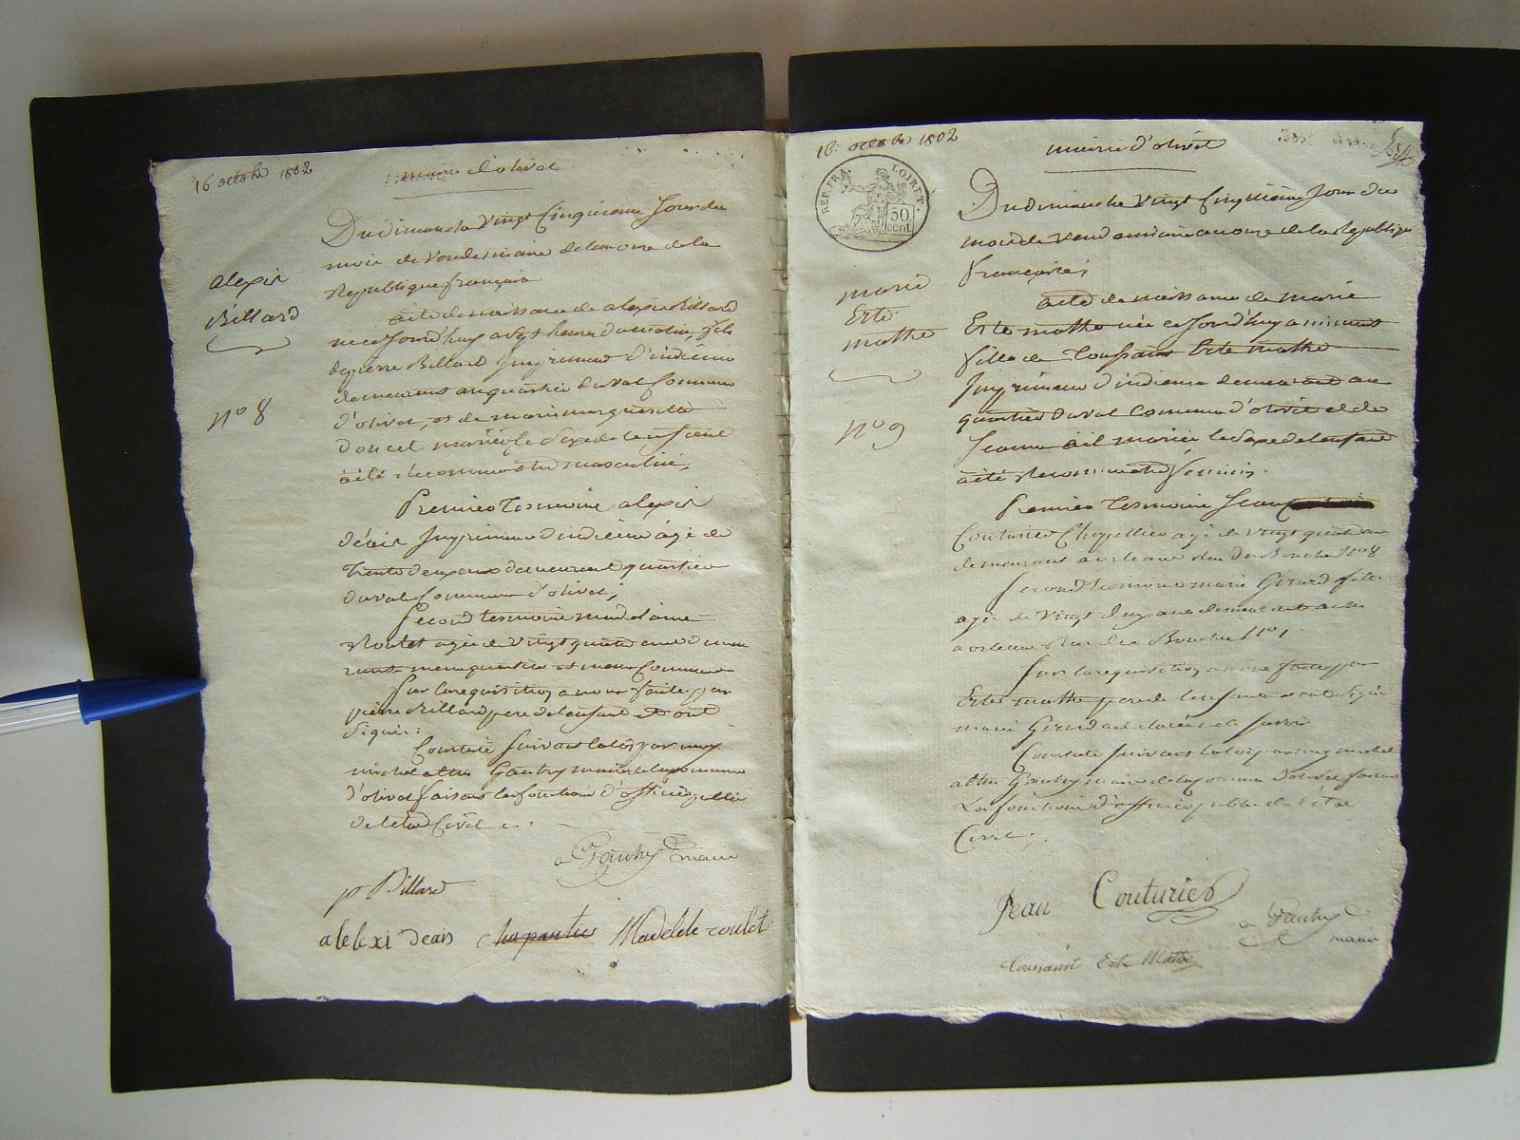 16 octobre 1802
mairie d'olivet
Du dimanche Vingt Cinquieme Jour du
mois de Vendemiaire de lan onze de la
Republique français
alexis
Billard
n° 8
acte de naissance de alexis Billard
né ce Jourd'huy a sept heures du matin, fils
de pierre Billard Imprimeur d'indienne
demeurant au quartier du val Commune
d'olivet, et de marie marguerite
doucet mariée le Sexe de lenfant
a été reconnu etre masculin,
Premier tesmoin alexis
deais Imprimeur d'indienne agé de
trente deux ans demeurant quartier
du val Commune d'olivet,
Second tesmoin madelaine
Roulet agée de Vingt quatre ans demeu
rante meme quartier et meme Commune
Sur la requisition a nous faite par
pierre Billard pere de lenfant et ont
Signé:
Constaté Suivant la loy par moy
michel altin Gautry maire de la commune
d'olivet faisant les fonctions d'officier public
de letat Civil
a Gautry maire
p Billard
alelexi deais charpantier Madelele roulet
16 octobre 1802
mairie d'olivet
REP. FRA. LOIRET.
50
cent.
Du dimanche Vingt Cinquieme Jour du
mois de Vendemiaire an onze de la Republique
française;
marie
Erte
mathe
n° 9
acte de naissance de marie
Erte mathe née ce Jourd'huy a minuit
fille de Toussaint Erte mathe
Imprimeur d'indienne demeurant au
quartier du val Commune d'olivet et de
Jeanne mariée le Sexe de lenfant
a été Reconnu etre féminin.
Premier Tesmoin Jean
Couturier Chapellier agé de vingt quatre ans
demeurant a orleans rue des n° 8
Second tesmoin marie Gérard fille
agée de Vingt deux ans demeurante
a orleans Rue des n° 1
Sur la requisition a nous faitte par
Erte mathe pere de lenfant et ont Signé
marie Gérard a declaré ne le Savoir
Constaté Suivant la loy par moy michel
altin Gautry maire de la Commune d'olivet faisant
Les fonctions d'officier public de l'état
Civil;
Jean Couturier
a Gautry
maire
toussaint Erte Mathe